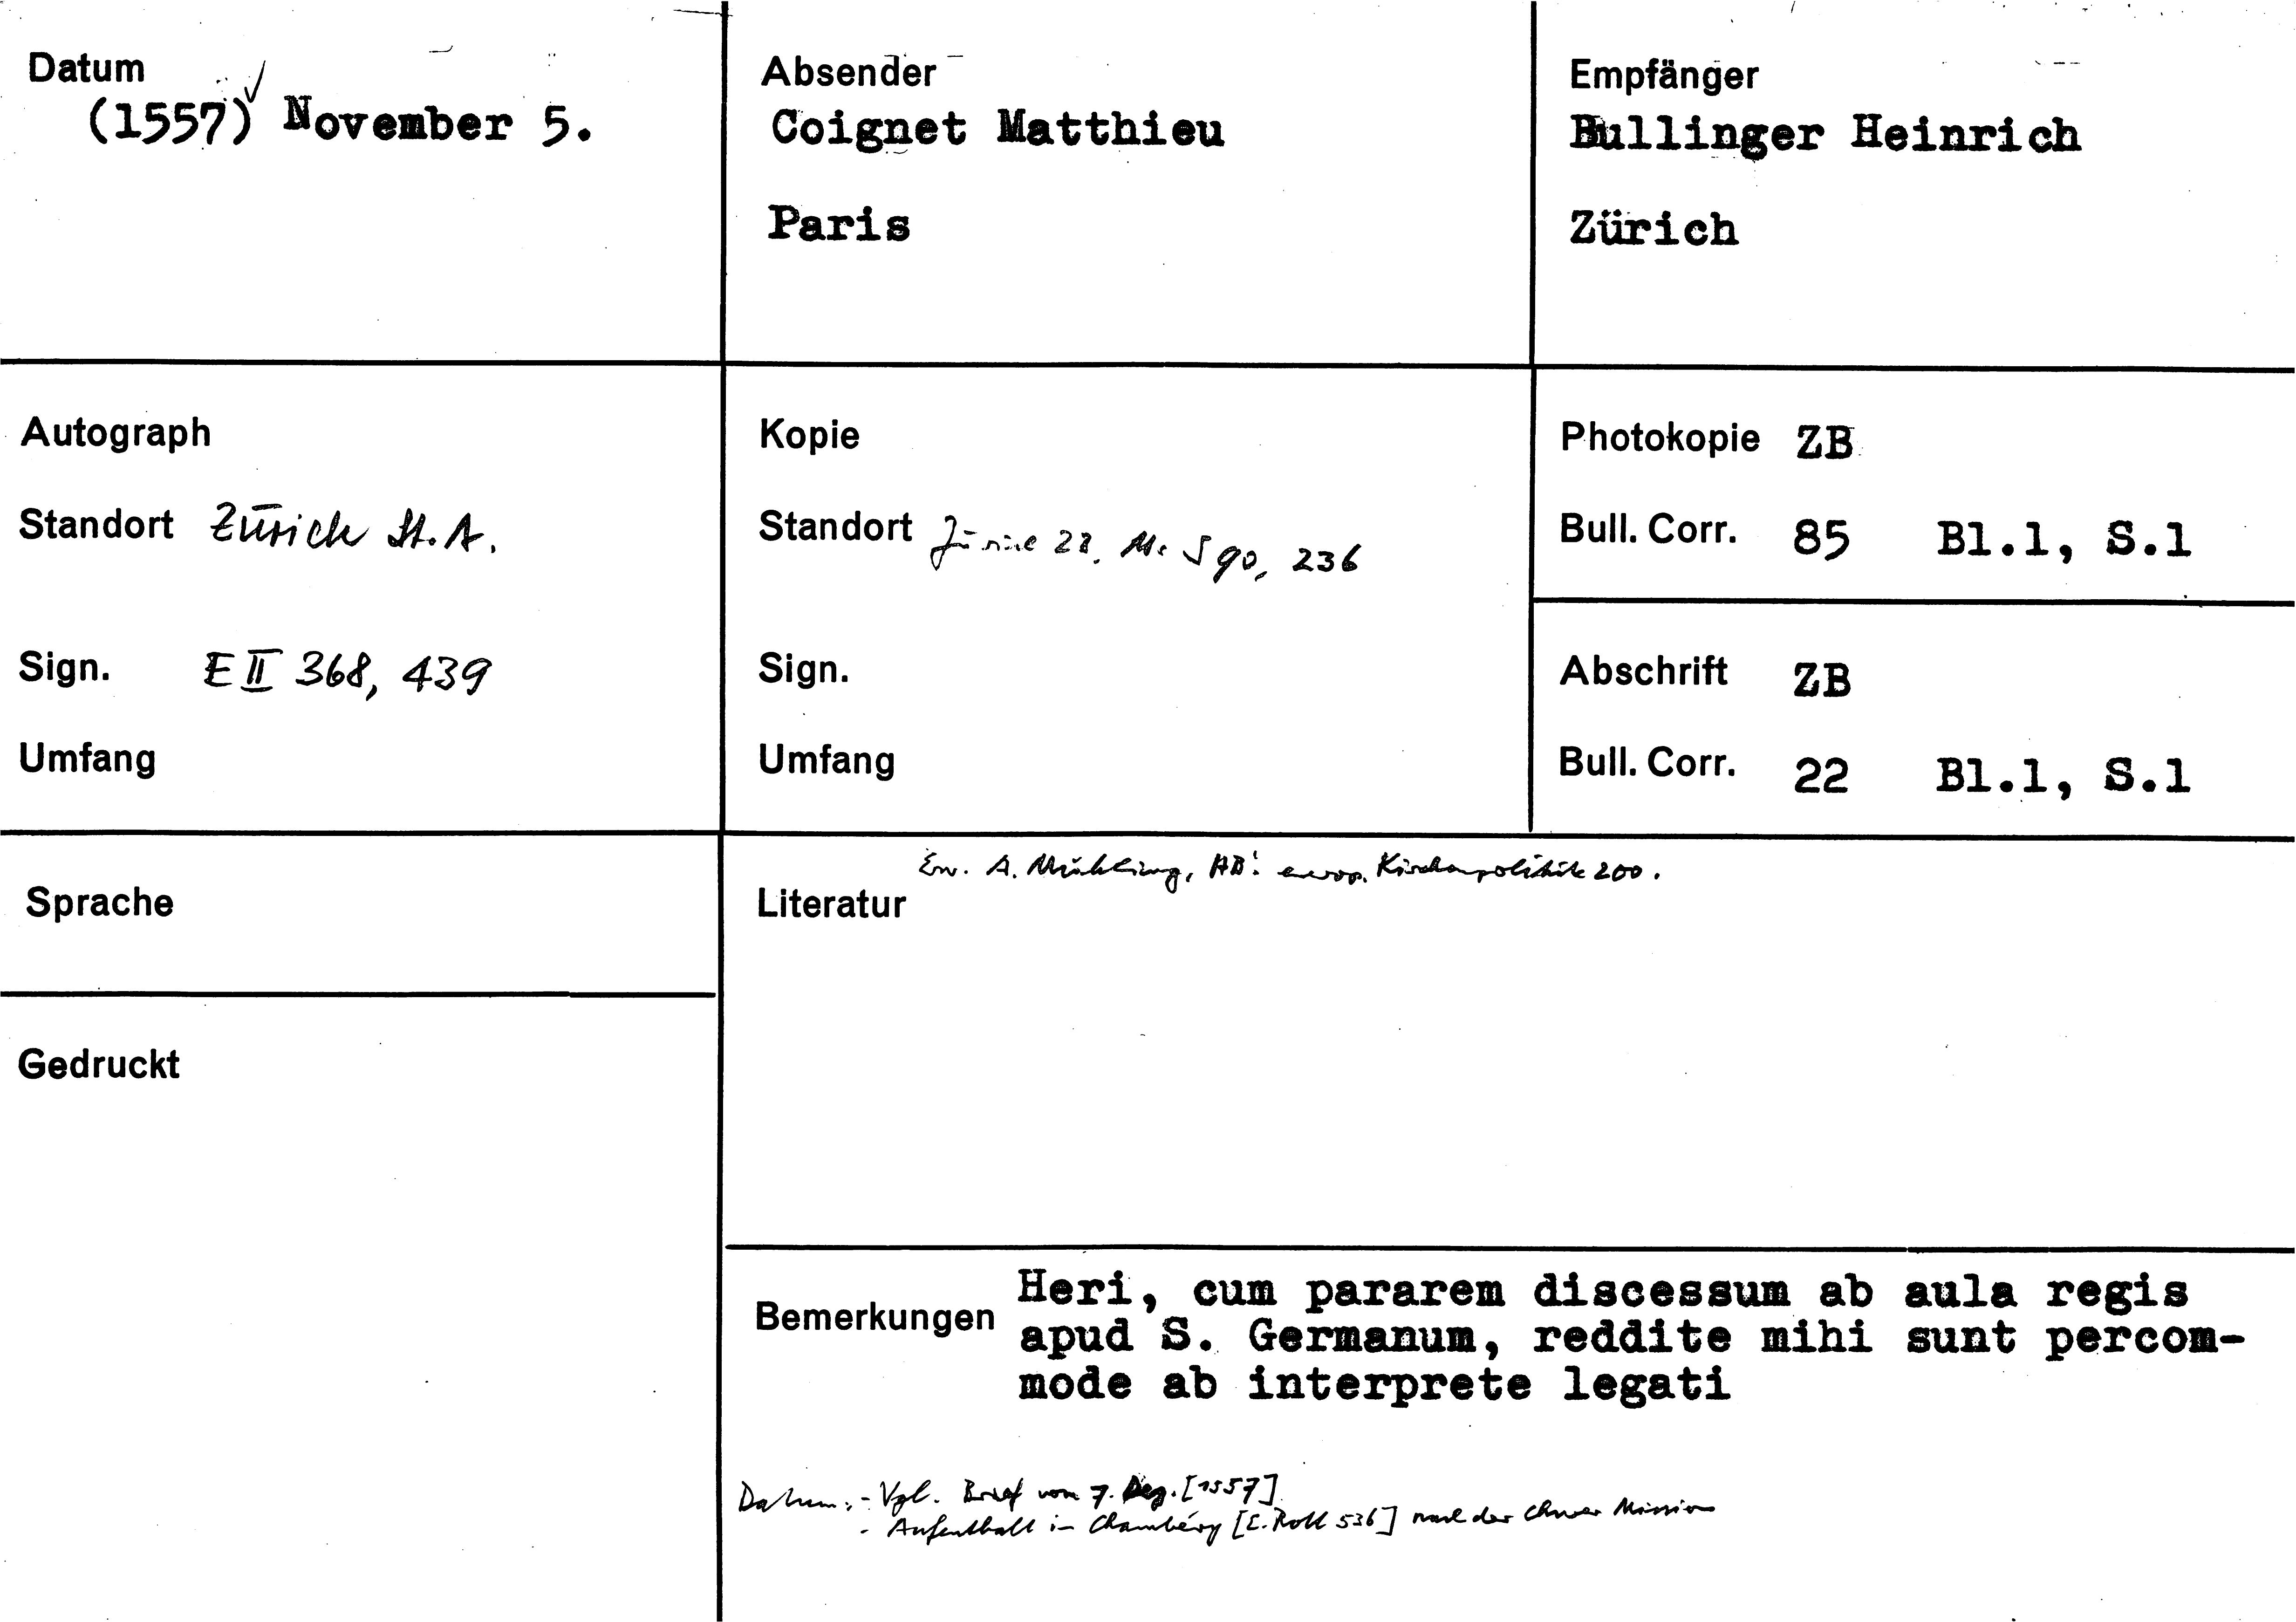 Datum
(1557) November 5.
Absender
Coignet Matthieu
Paris
Empfänger
Bullinger Heinrich
Zürich
Autograph
Standort Zürich St.A.
Sign. E II 368, 439
Umfang
Kopie
Standort Zürich ZB, Ms S 90, 236
Sign.
Umfang
Photokopie ZB
Bull. Corr. 85 Bl.1, S.1
Abschrift ZB
Bull. Corr. 22 Bl.1, S.1
Sprache
Gedruckt
Erw. A. Mühling, HB's europ. Kirchenpolitik 200.
Literatur
Bemerkungen
Heri, cum pararem discessum ab aula regis
apud S. Germanum, reddite mihi sunt percom-
mode ab interprete legati
Datum: - Vgl. Brief vom 7. Dez. [1557]
- Aufenthalt in Chambéry [E. Rott 536] nach der Churer Mission